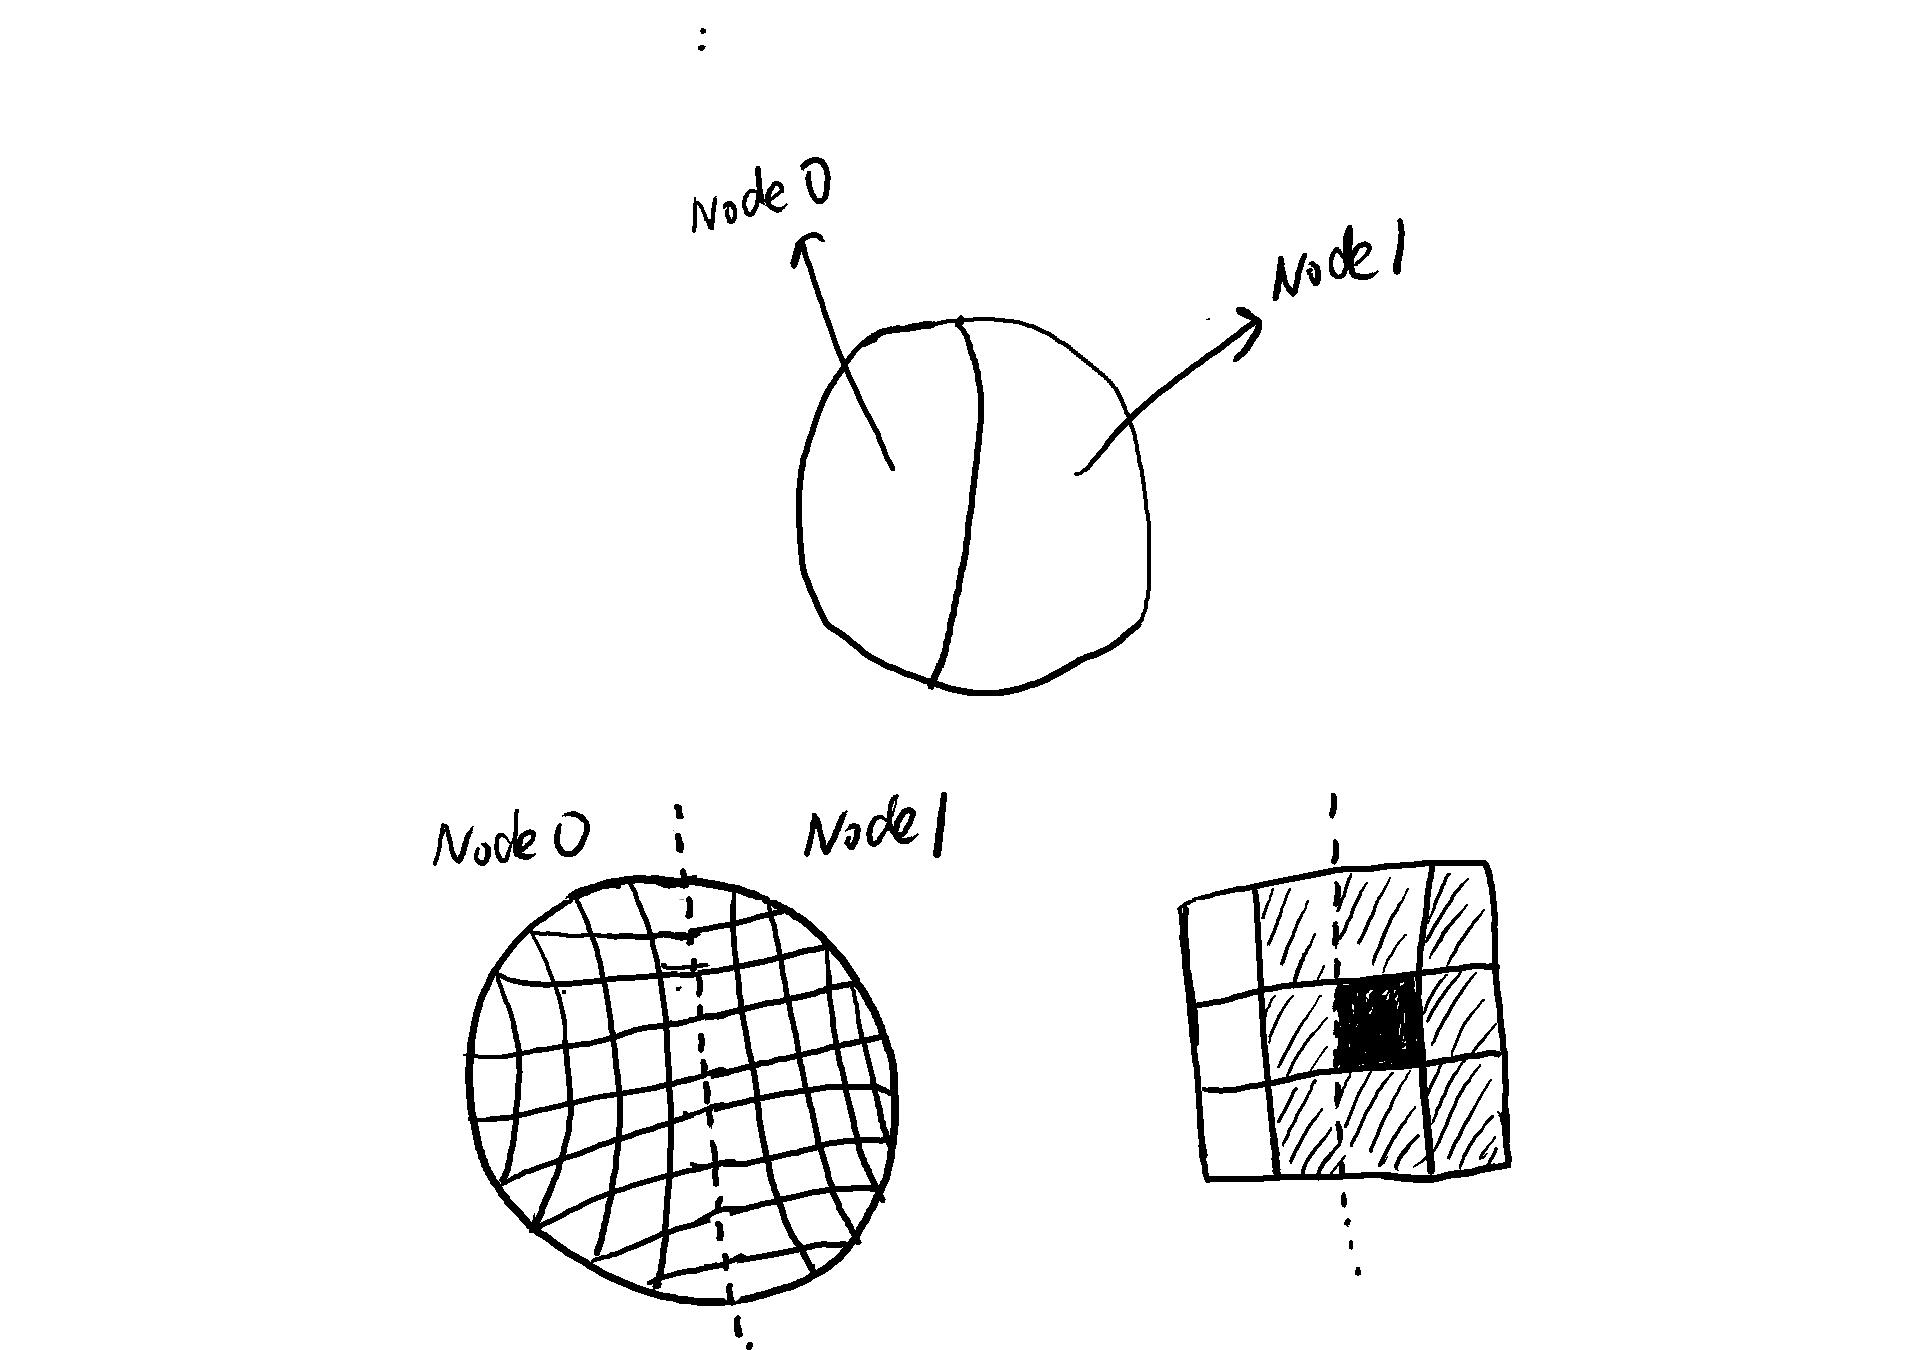 Node 0
Node 1
Node 0
Node 1